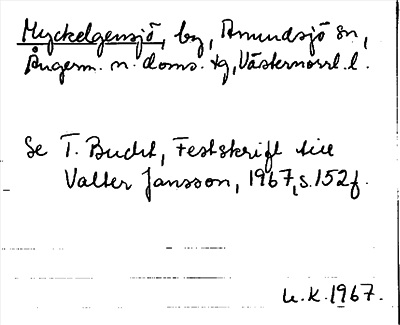 Myckelgensjö, by, Anundsjö sn,
Ångerm. n. doms. tg, Västernorrl. l.
Se T. Bucht, Festskrift till
Valter Jansson, 1967, s. 152f.
U.K. 1967.